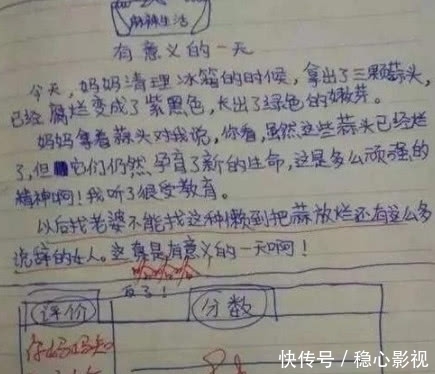 麻辣生活
有意义的一天
今天，妈妈清理冰箱的时候，拿出了三颗蒜头，
已经腐烂变成了紫黑色，长出了绿色的嫩芽。
妈妈拿着蒜头对我说，你看，虽然这些蒜头已经烂
了，但它们仍然孕育了新的生命，这是多么顽强的
精神啊！我听了很受教育。
以后找老婆不能找这种懒到把蒜放烂还有这么多
说辞的女人。这真是有意义的一天啊！
反了！
评价
分数
你妈妈知
快传号／稳心影视